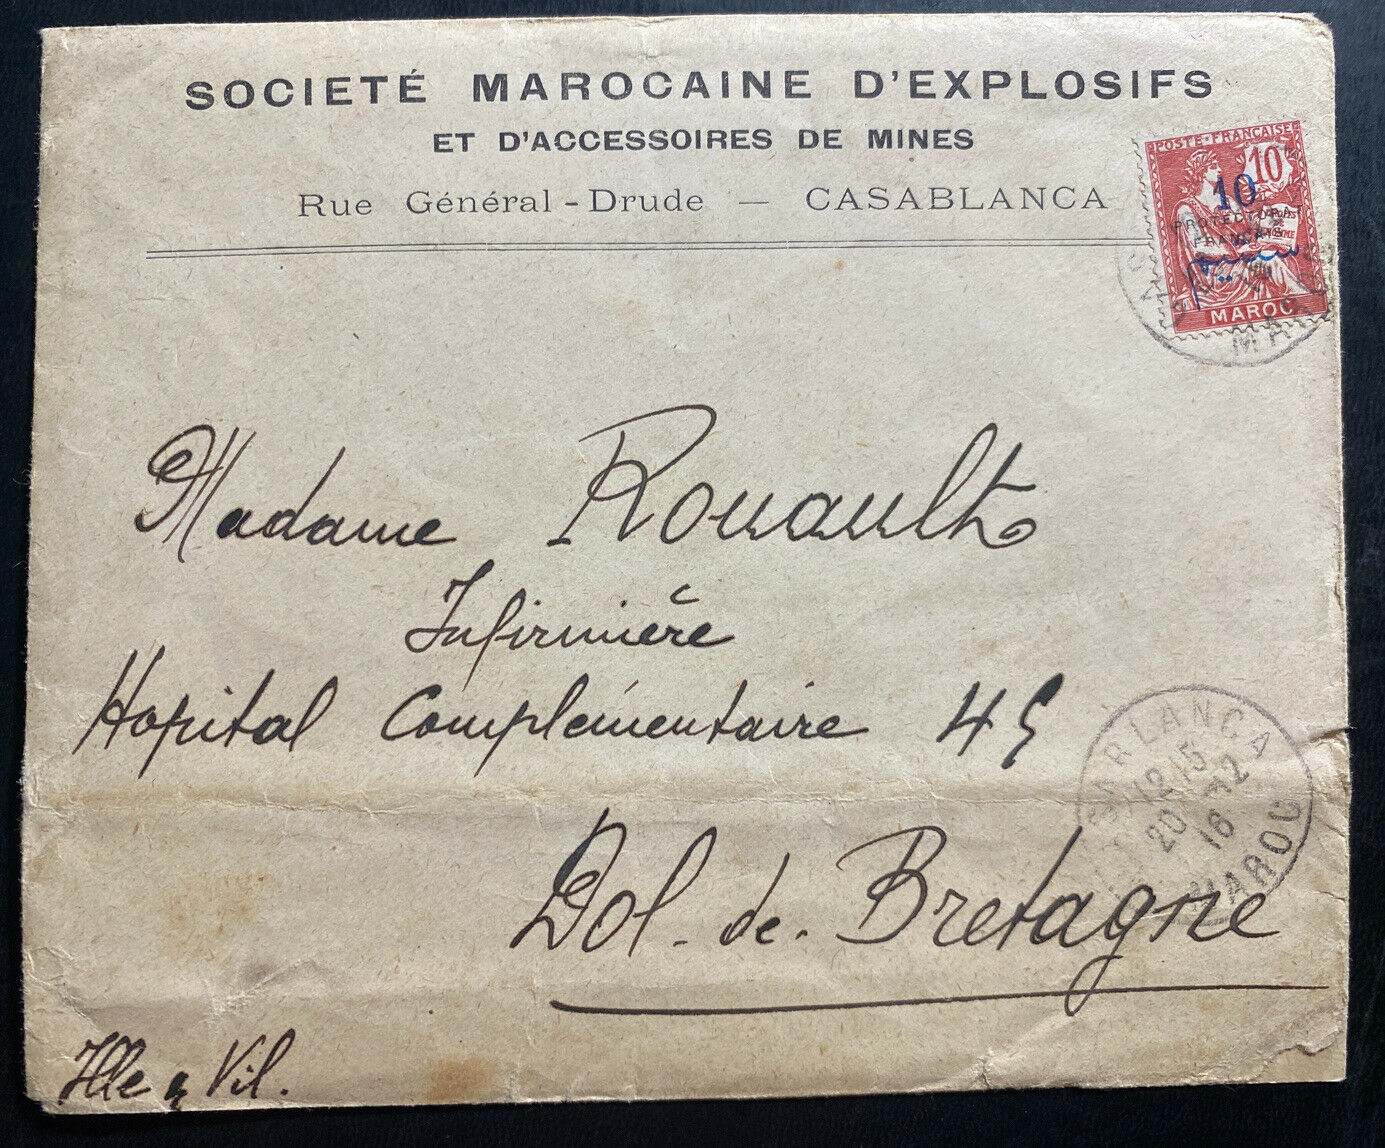 SOCIETÉ MAROCAINE D'EXPLOSIFS
ET D'ACCESSOIRES DE MINES
Rue Général-Drude — CASABLANCA
POSTE FRANÇAISE
10
10
PROTECTORAT
FRANÇAIS
MAROC
MAROC
Madame Rouault
Infirmière
Hopital Complémentaire 45
Dol-de-Bretagne
Ille & Vil.
12 15
20 12
16
MAROC